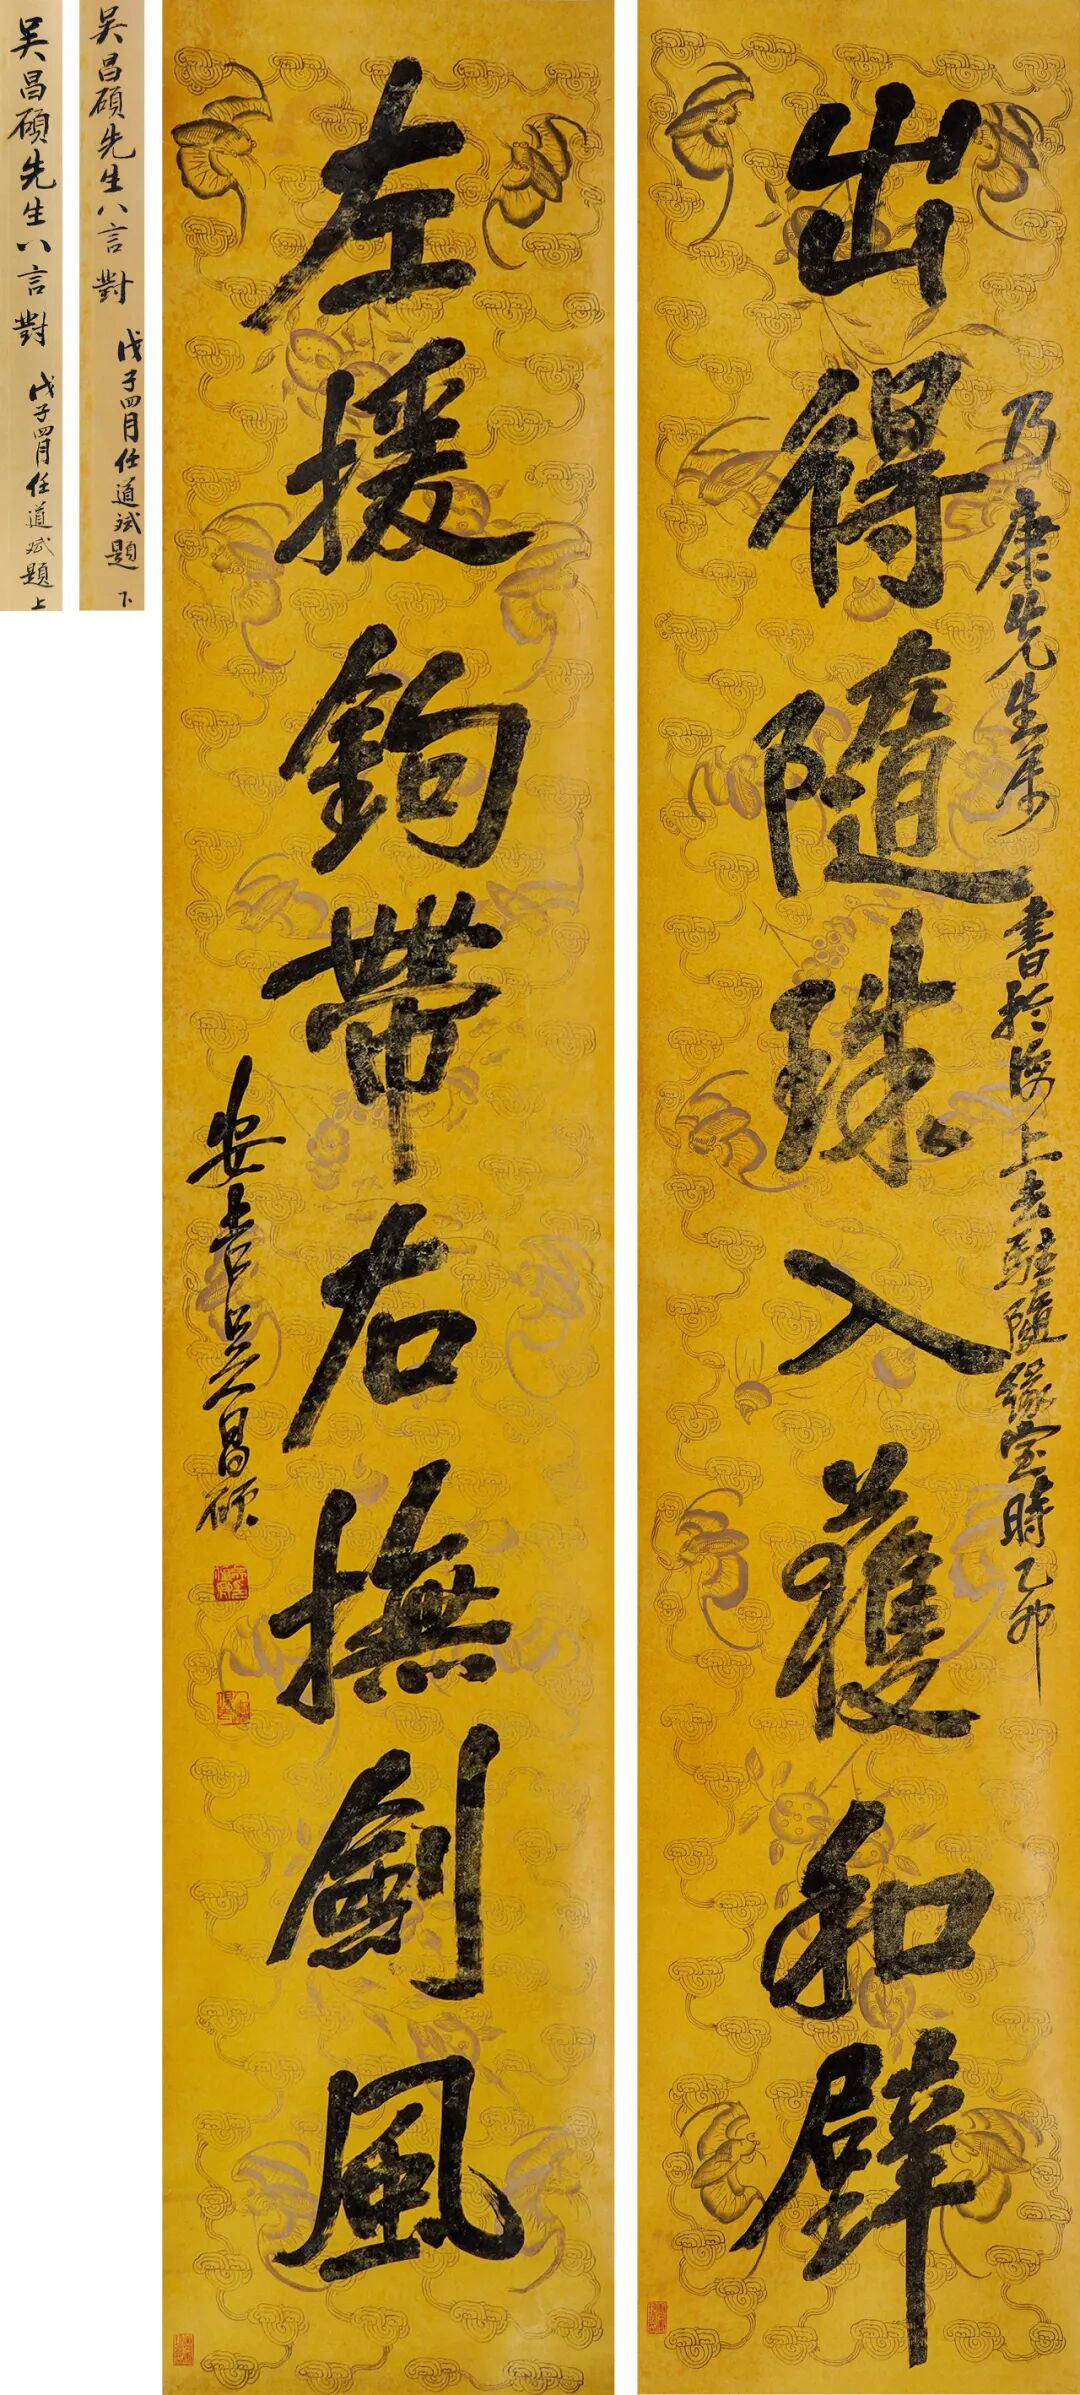 出得隨珠入獲和璧
乃康先生属書於海上去駐隨緣室時乙卯
左援鉤帶右撫劍風
安吉吳昌碩
吳昌碩先生八言對 戊子四月任道斌題 下
吳昌碩先生八言對 戊子四月任道斌題 上